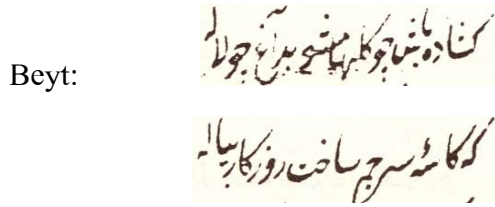 Beyt:
کشاده باش چو کلها بداغ چو لاله
که کاسهٔ سر جم ساخت روزکار پیاله